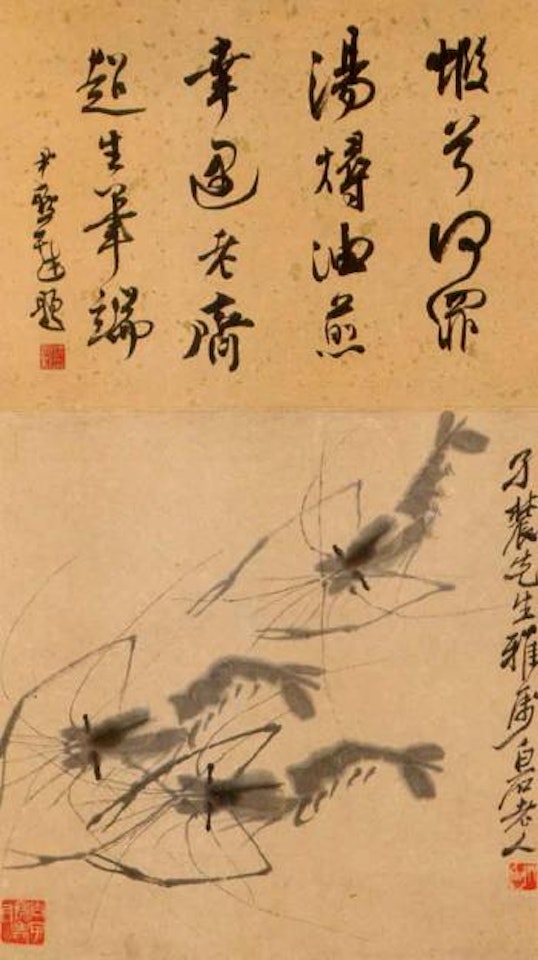 蝦兮何罪
湯燖油煎
幸遇老齊
超生筆端
尹 題
子農先生雅屬白石老人